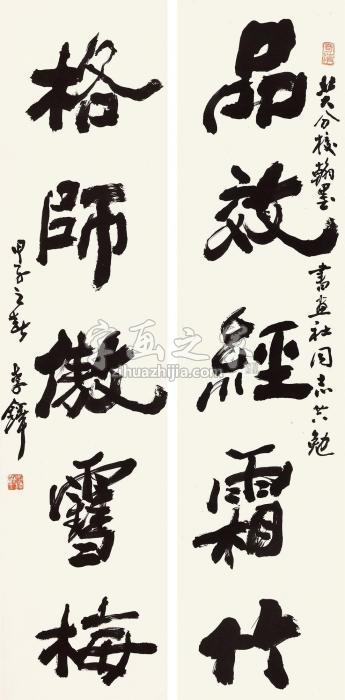 分校翰墨書画社同志共勉
品效經霜竹
格師傲雪梅
甲子之春 李鐸
字画之家
zihuazhijia.com